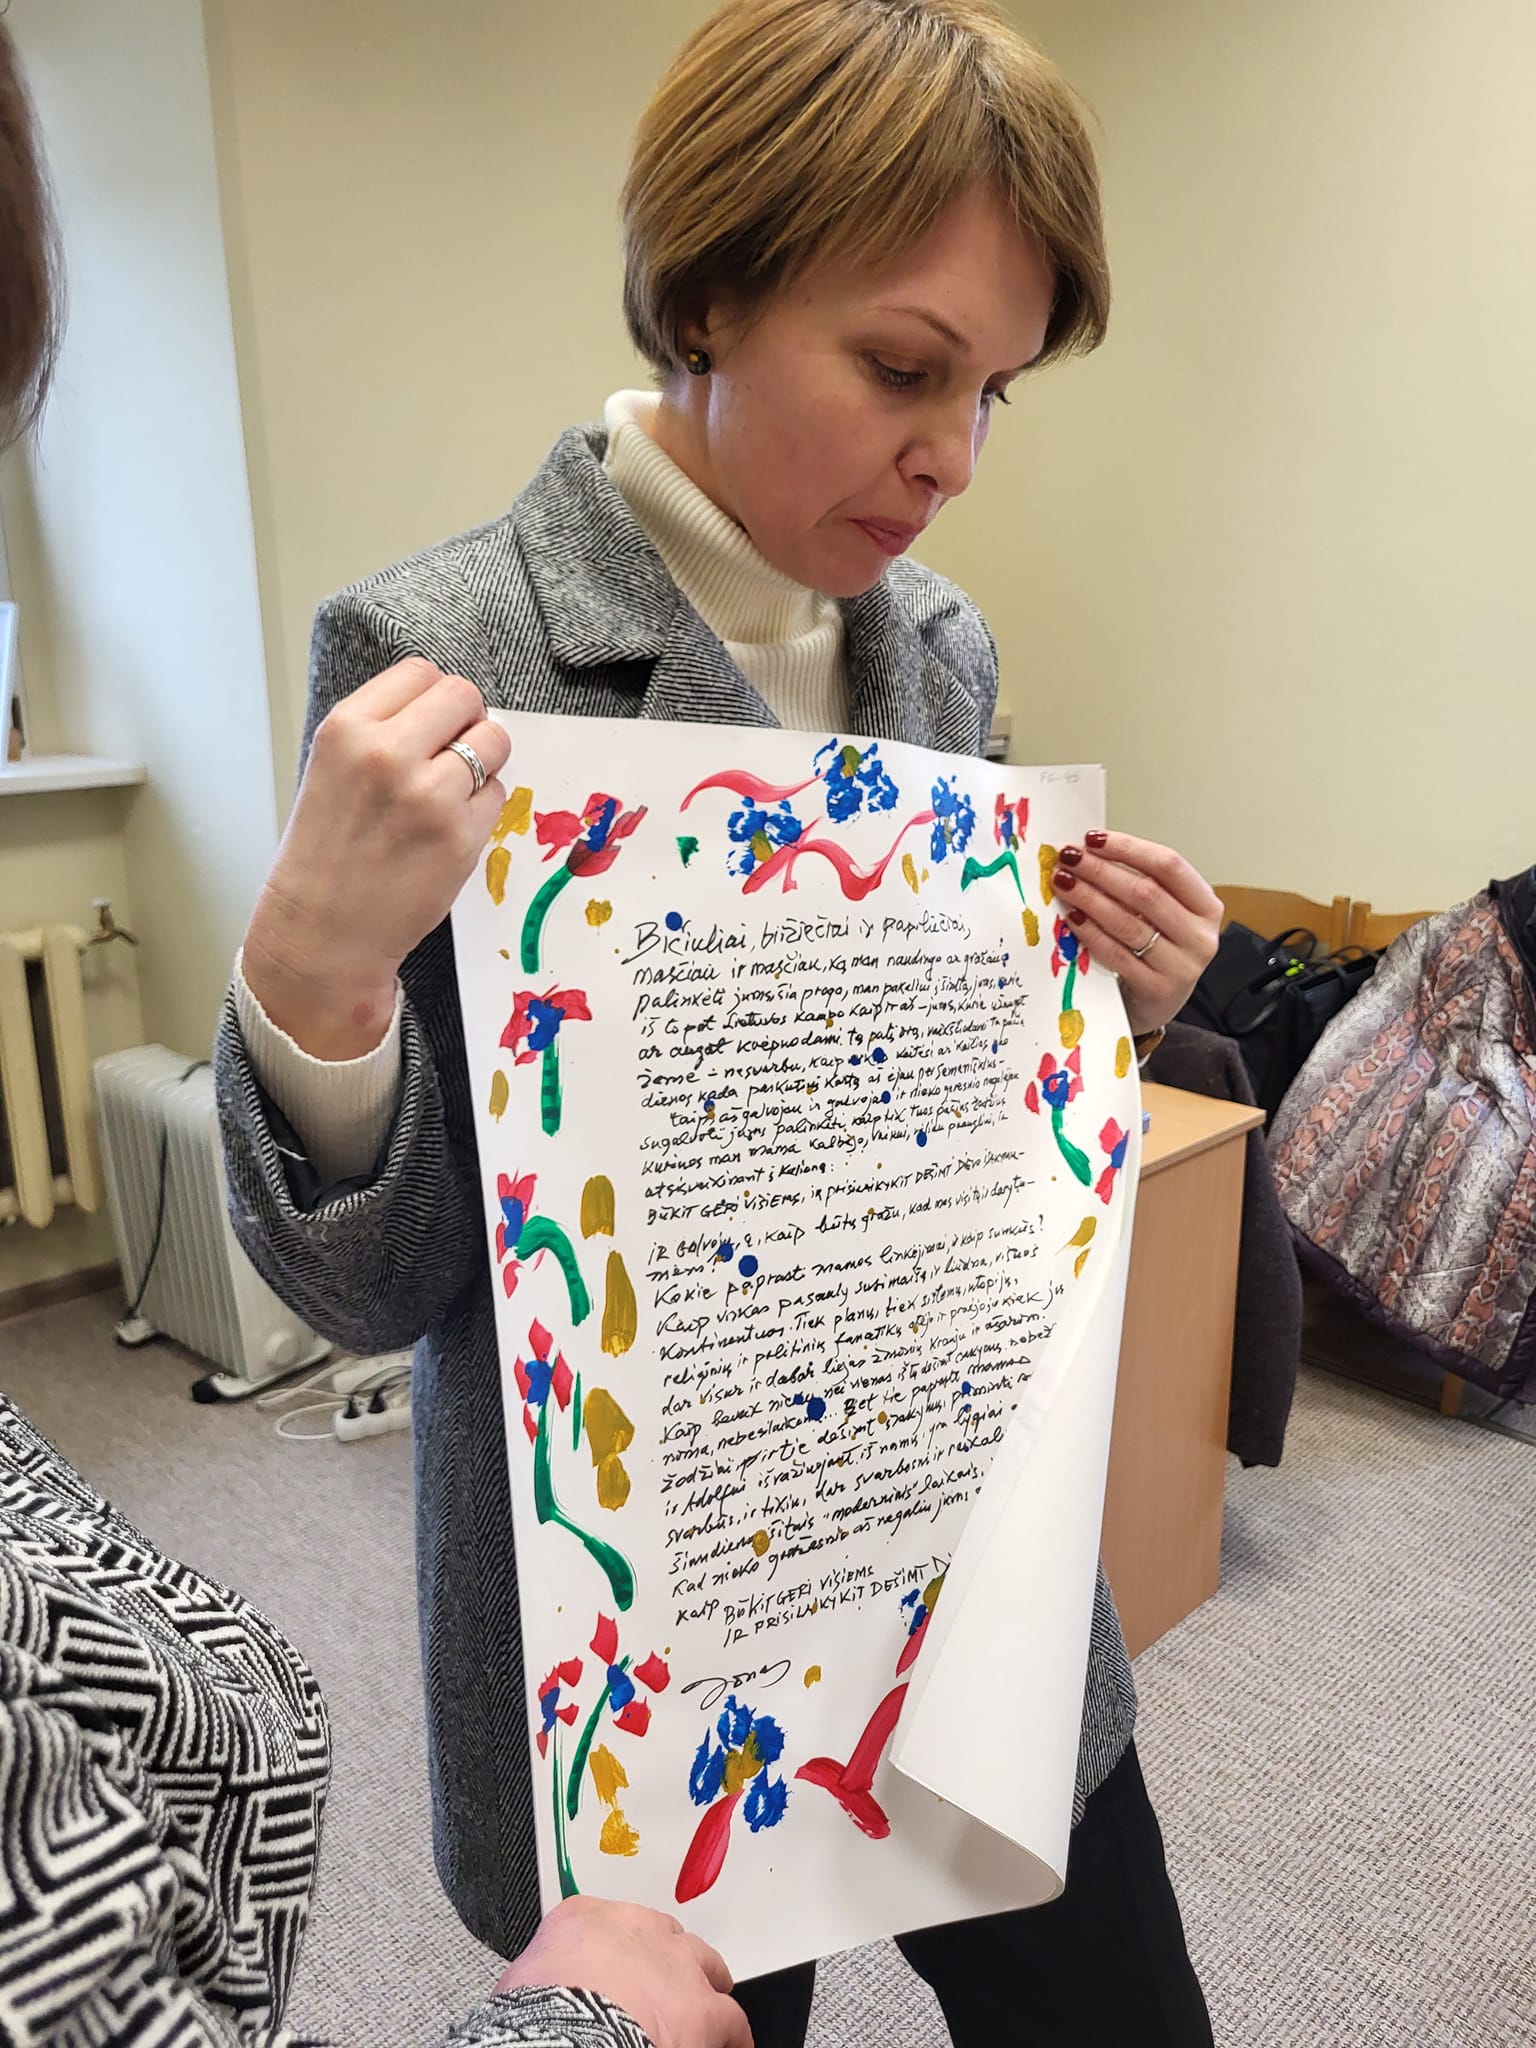 FG-45
Bičiuliai, biržiečiai ir papiliečiai,
mąsčiau ir mąsčiau, ką man naudingo ar gražaus
palinkėti jums, šia proga, man pakeliui į šimtą, jums, kurie
iš to pat Lietuvos kampo kaip ir aš – jums, kurie užaugot
ar augat kvėpuodami tą patį orą, vaikščiodami ta pačia
žeme – nesvarbu, kaip viskas keitėsi ar keitias nuo
dienos kada paskutinį kartą aš ėjau per Semeniškius –
taip aš galvojau ir galvojau ir nieko geresnio negalėjau
sugalvoti jums palinkėti kaip tik tuos pačius žodžius
kuriuos man mama kalbėjo, vaikui, vėliau paaugliui, ir
atsisveikinant į kelionę:
BŪKIT GERI VISIEMS, IR PRISILAIKYKIT DEŠIMT DIEVO ĮSAKYMŲ –
IR Galvoju, o, kaip būtų gražu, kad mes visi tai darytu–
mėm!
Kokie paprasti mamos linkėjimai, o kaip sunkūs!
Kaip viskas pasauly susimaišę ir liūdna, visuos
kontinentuos. Tiek planų, tiek sistemų, utopijų,
religinių ir politinių fanatikų atėjo ir praėjo ir kiek jų
dar visur ir dabar liejas žmonių krauju ir ašarom.
Kaip beveik niekas nei vienas iš tų dešimt įsakymų nebež
noma, nebesilaikoma... Bet tie paprasti mamos
žodžiai, ir tie dešimt įsakymų, priminti m
ir Adolfui išvažiuojant iš namų, yra lygiai
svarbūs, ir tikiu, dar svarbesni ir reikali
šiandieną, šitais "moderniais" laikais,
kad nieko gražesnio aš negaliu jums
kaip BŪKIT GERI VISIEMS
IR PRISILAIKYKIT DEŠIMT DI
Jonas